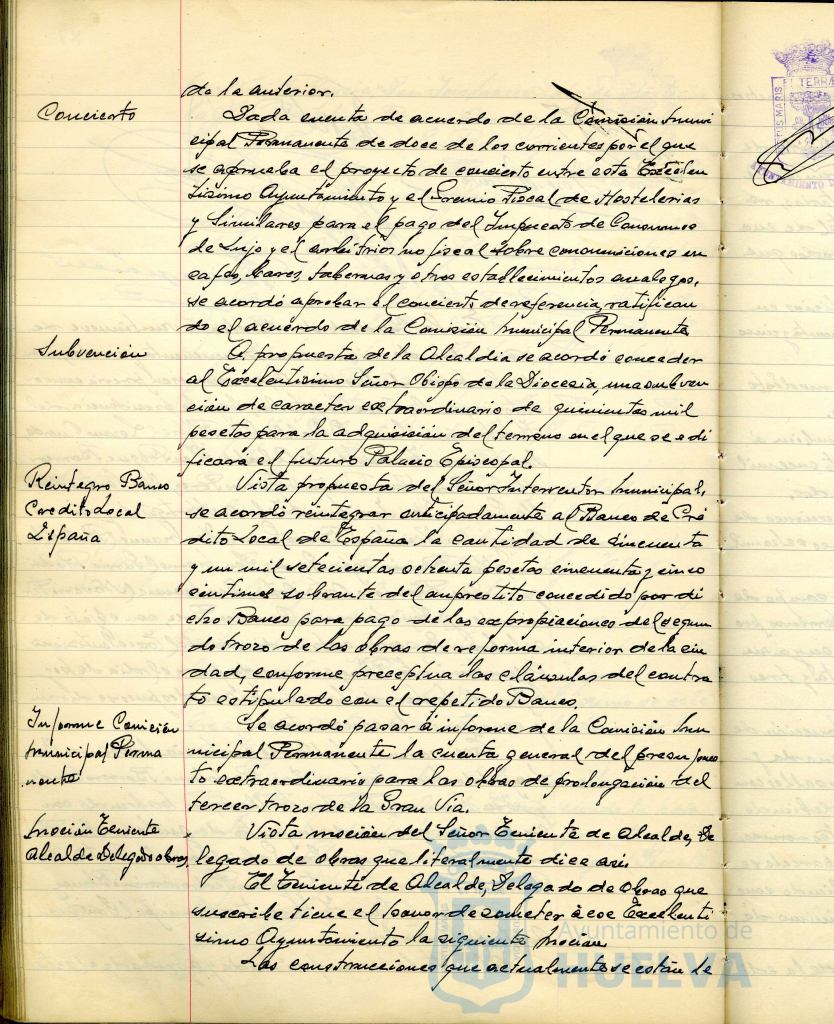 de la anterior.
Concierto
Dada cuenta de acuerdo de la Comisión Muni
cipal Permanente de doce de los corrientes por el que
se aprueba el proyecto de concierto entre este Excelen
tísimo Ayuntamiento y el Gremio Fiscal de Hostelerias
y Similares para el pago del Impuesto de Consumos
de Lujo y el arbitrios no fiscal sobre consumiciones en
cafes, bares, tabernas y otros establecimientos analogos,
se acordó aprobar el concierto de referencia, ratifican
do el acuerdo de la Comisión Municipal Permanente
Subvención
A propuesta de la Alcaldia se acordó conceder
al Excelentisimo Señor Obispo de la Diocesis, una subven
ción de caracter extraordinario de quinientas mil
pesetas para la adquisición del terreno en el que se edi
ficará el futuro Palacio Episcopal.
Reintegro Banco
Credito Local
España
Vista propuesta del Señor Interventor Municipal,
se acordó reintegrar anticipadamente al Banco de Cré
dito Local de España la cantidad de cincuenta
y un mil setecientas ochenta pesetas cincuenta y cinco
centimos sobrante del emprestito concedido por di
cho Banco para pago de las expropiaciones del segun
do trozo de las obras de reforma interior de la ciu
dad, conforme preceptua las cláusulas del contra
to estipulado con el repetido Banco.
Informe Comisión
Municipal Perma
nente
Se acordó pasar á informe de la Comisión Mu
nicipal Permanente la cuenta general del presupues
to extraordinario para las obras de prolongación del
tercer trozo de la Gran Vía.
Moción Teniente
Alcalde Delegado obras,
Vista moción del Señor Teniente de Alcalde, De
legado de obras que literalmente dice asi:
El Teniente de Alcalde, Delegado de Obras que
suscribe tiene el honor de someter á ese Excelenti
simo Ayuntamiento la siguiente Moción
Las construcciones que actualmente se están le
Ayuntamiento de
HUELVA